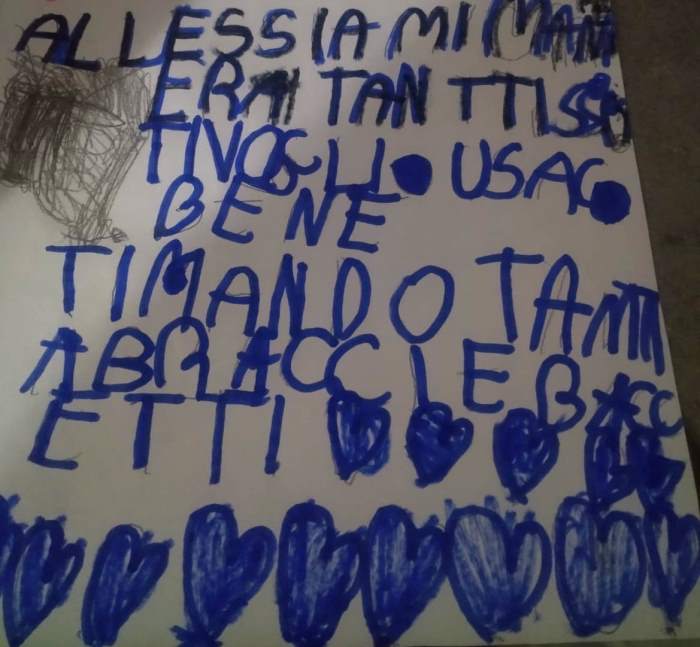 ALLESSIA MI MAN
ERAI TANTTISSO
TIVOGLIO USACO
BENE
TIMANDO TANTI
ABRACCI E BACC
ETTI